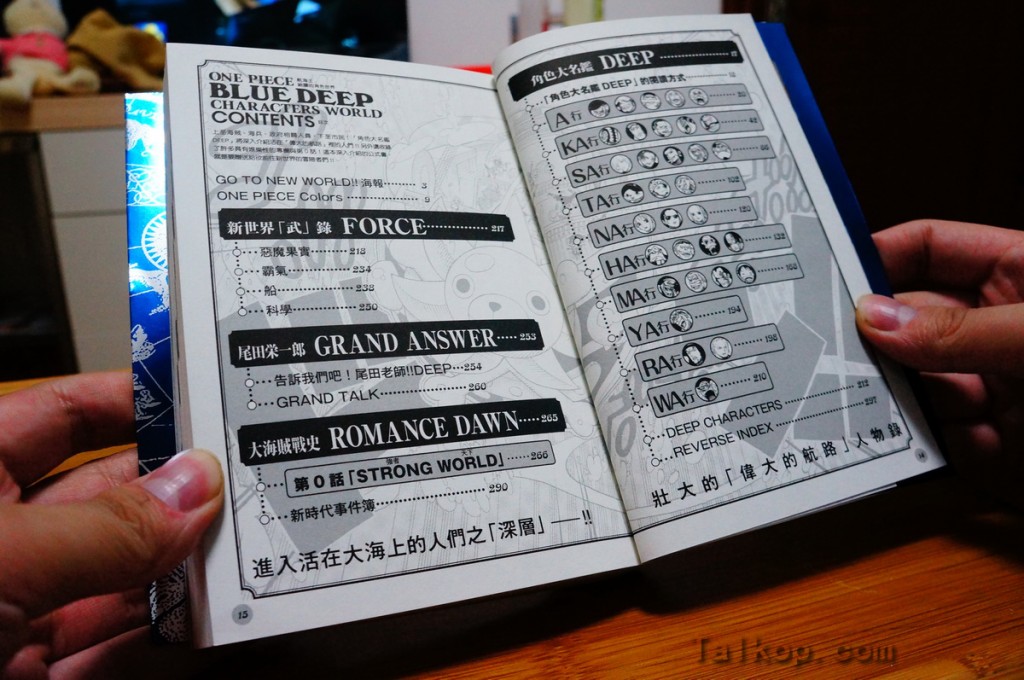 ONE PIECE
BLUE DEEP
CHARACTERS WORLD
CONTENTS 目次
GO TO NEW WORLD!! 海報 3
ONE PIECE Colors 9
新世界「武」錄 FORCE 217
惡魔果實 218
霸氣 234
船 238
科學 250
尾田栄一郎 GRAND ANSWER 253
告訴我們吧！尾田老師!!DEEP 254
GRAND TALK 260
大海賊戰史 ROMANCE DAWN 265
第0話「STRONG WORLD」 266
新時代事件簿 290
進入活在大海上的人們之「深層」——!!
15
角色大名鑑 DEEP
「角色大名鑑 DEEP」的閱讀方式
A行
KA行
SA行
TA行
NA行
HA行
MA行
YA行 194
RA行 198
WA行 210
DEEP CHARACTERS 212
REVERSE INDEX 297
壯大的「偉大的航路」人物錄
Talkop.com